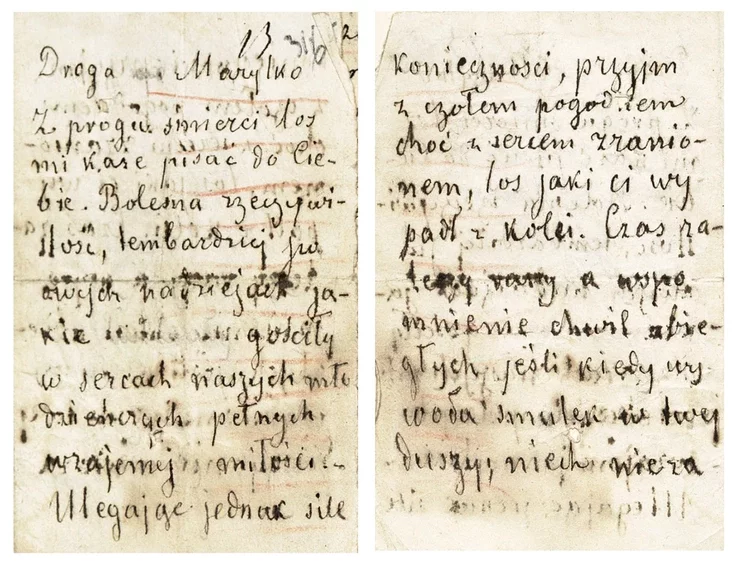 13
316
2
Droga Marylko
Z progu śmierci los
mi każe pisać do Cie-
bie. Bolesna rzeczywi-
stość, tembardziej po
owych nadziejach ja-
kie gościły
w sercach naszych mło
dzieńczych pełnych
wzajemnej miłości.-
Ulegając jednak sile
konieczności, przyjm
z czołem pogodnem
choć z sercem zranio-
nem, los jaki ci wy
padł z kolei. Czas za-
leczy rany a wspo
mnienie chwil ubie-
głych jeśli kiedy wy
woła smutek w twej
duszy, niech nie za